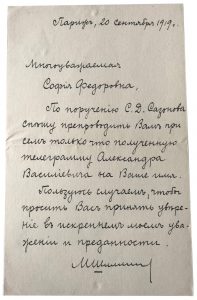 Парижъ, 20 сентября 1919г.
Многоуважаемая
Софія Федоровна,
По порученію С. Д. Сазонова
спѣшу препроводить Вамъ при
семъ только что полученную
телеграмму Александра
Васильевича на Ваше имя.
Пользуюсь случаемъ, чтобы
просить Васъ принять увѣре-
ніе въ искреннемъ моемъ ува-
женіи и преданности.